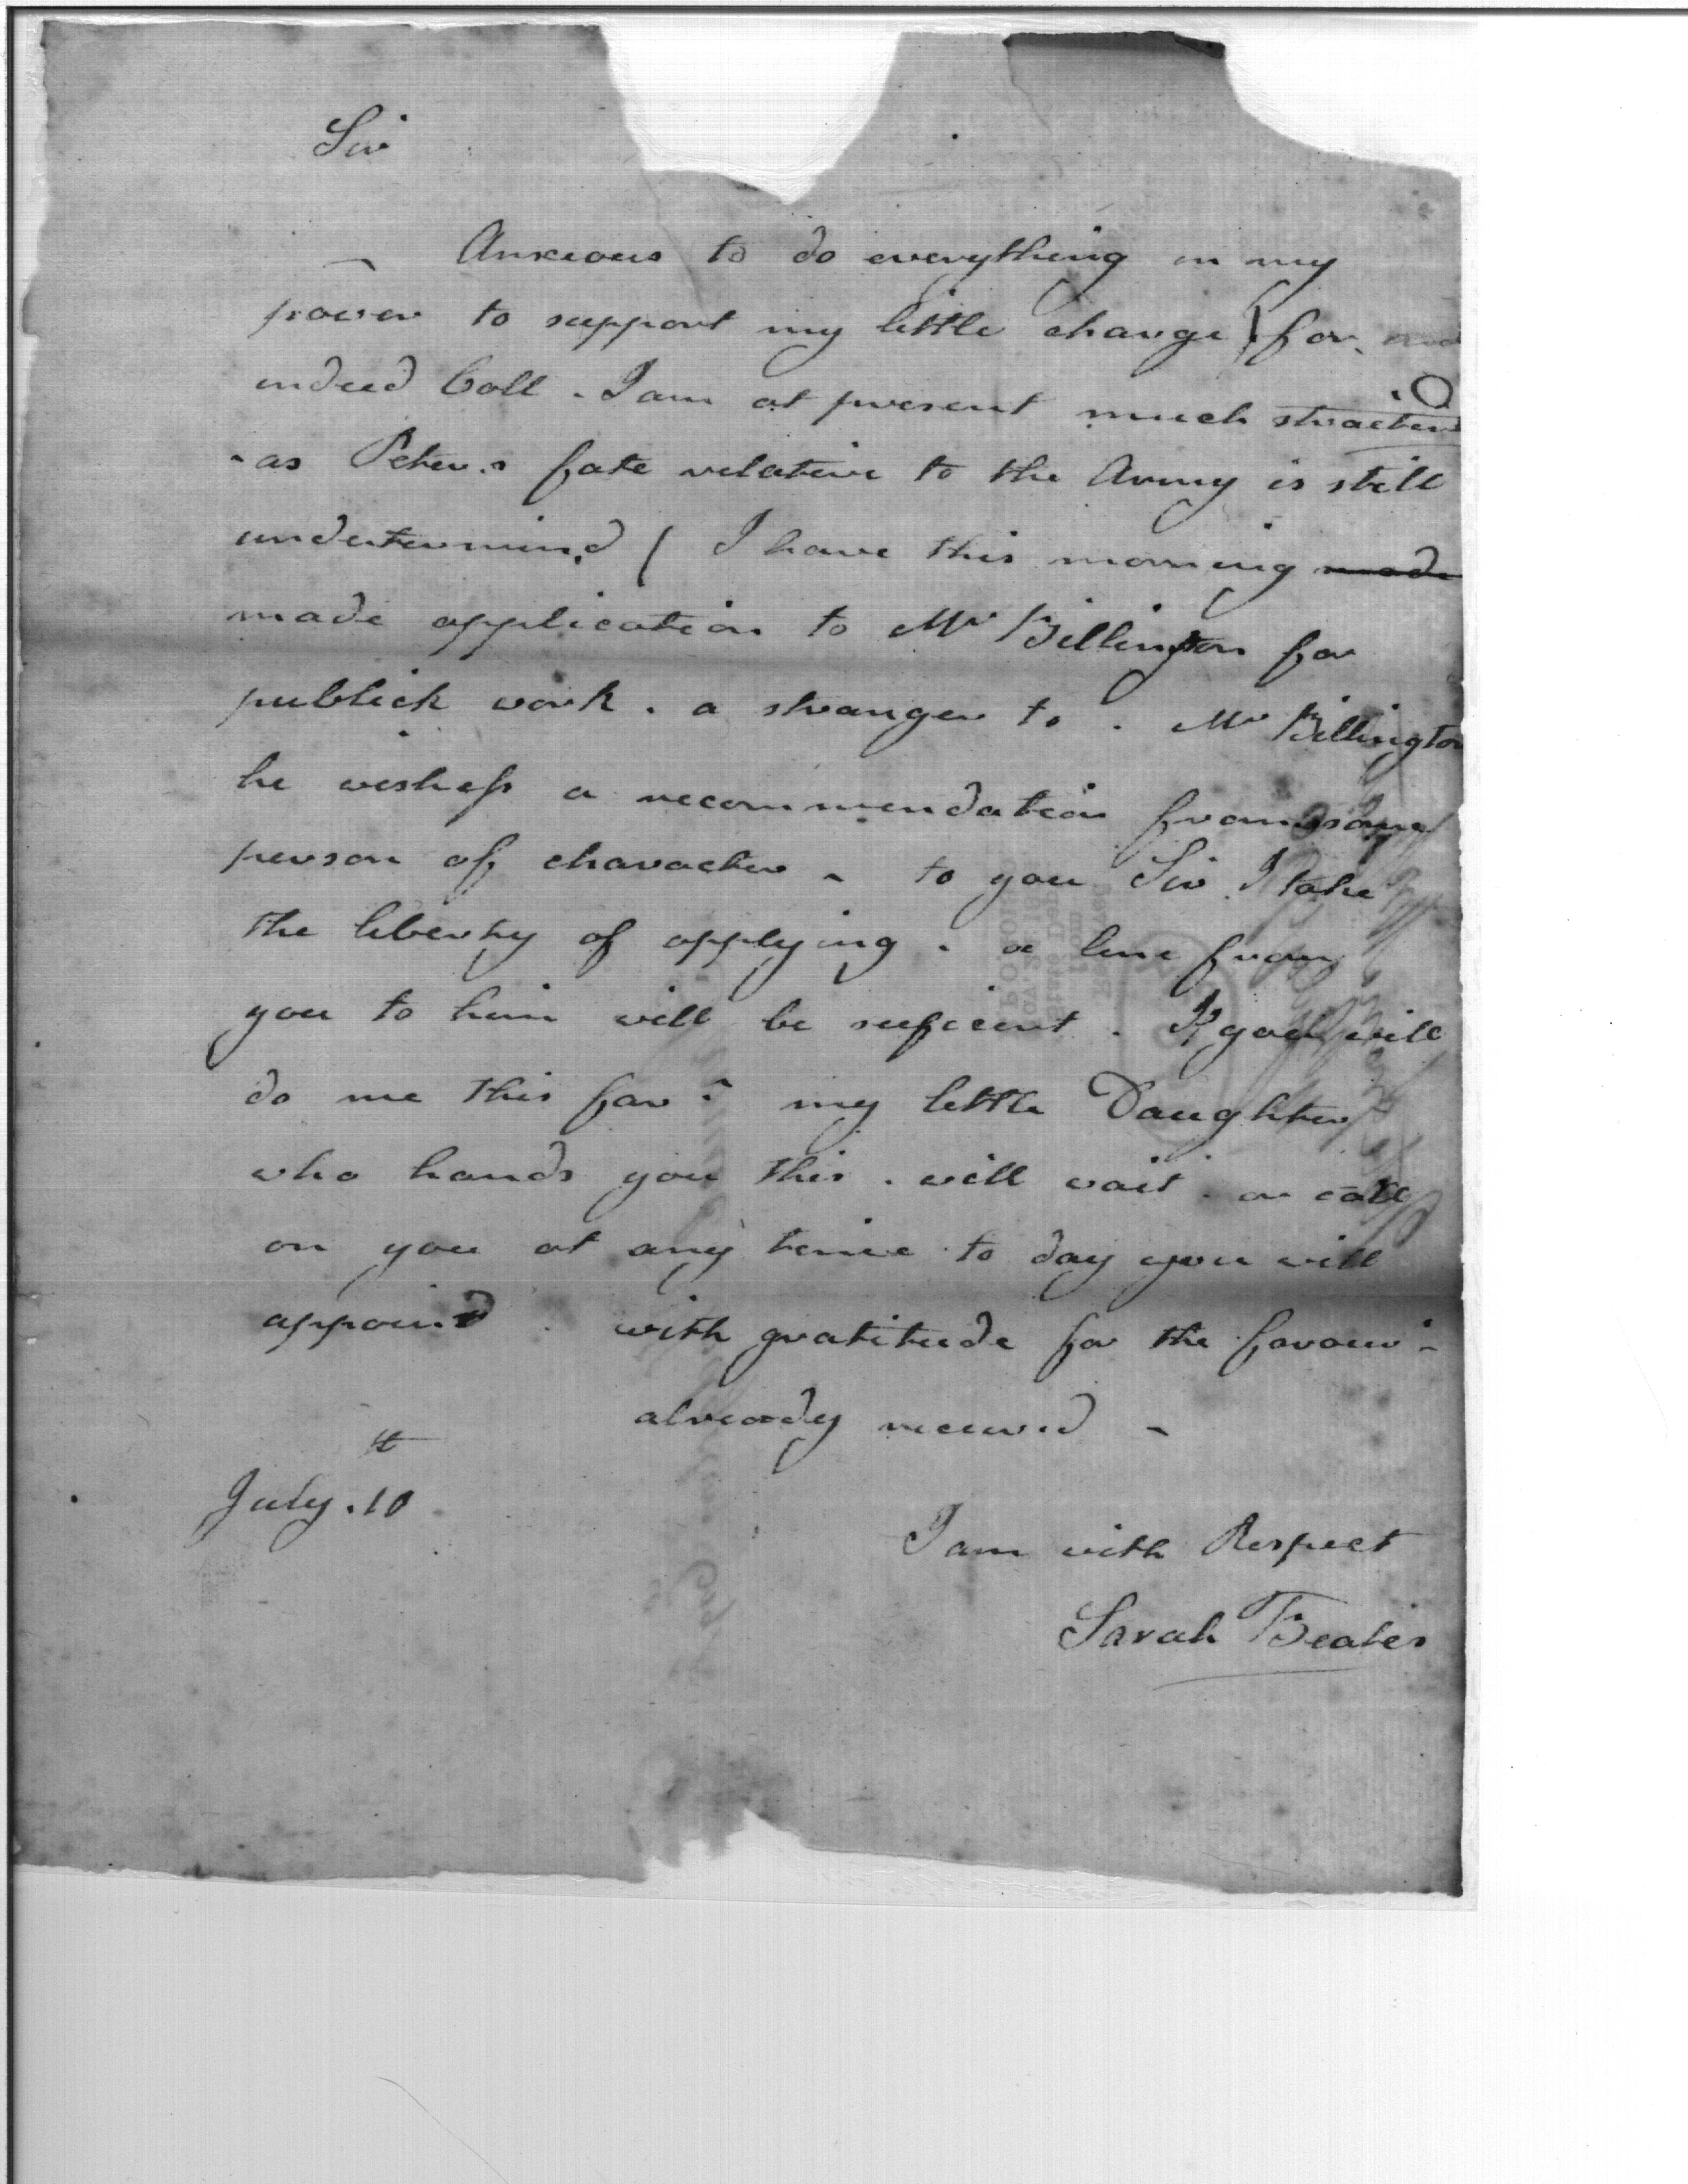 Sir
Anxious to do everything in my
power to support my little charge ) for
indeed Coll. I am at present much straiten'd
- as Peter.s fate relative to the Army is still
undetermin.d ( I have this morning made
made application to Mr Billington for
publick work. a stranger to. Mr Billington
he wishess a recommendation from some
person of character - to you Sir I take
the liberty of applying. a line from
you to him will be suficent. If you will
do me this favr. my little Daughter
who hands you this. will wait. or call
on you at any time to day you will
appoint. with gratitude for the favours
already receiv.d -
July. 10th
I am with Respect
Sarah Beales